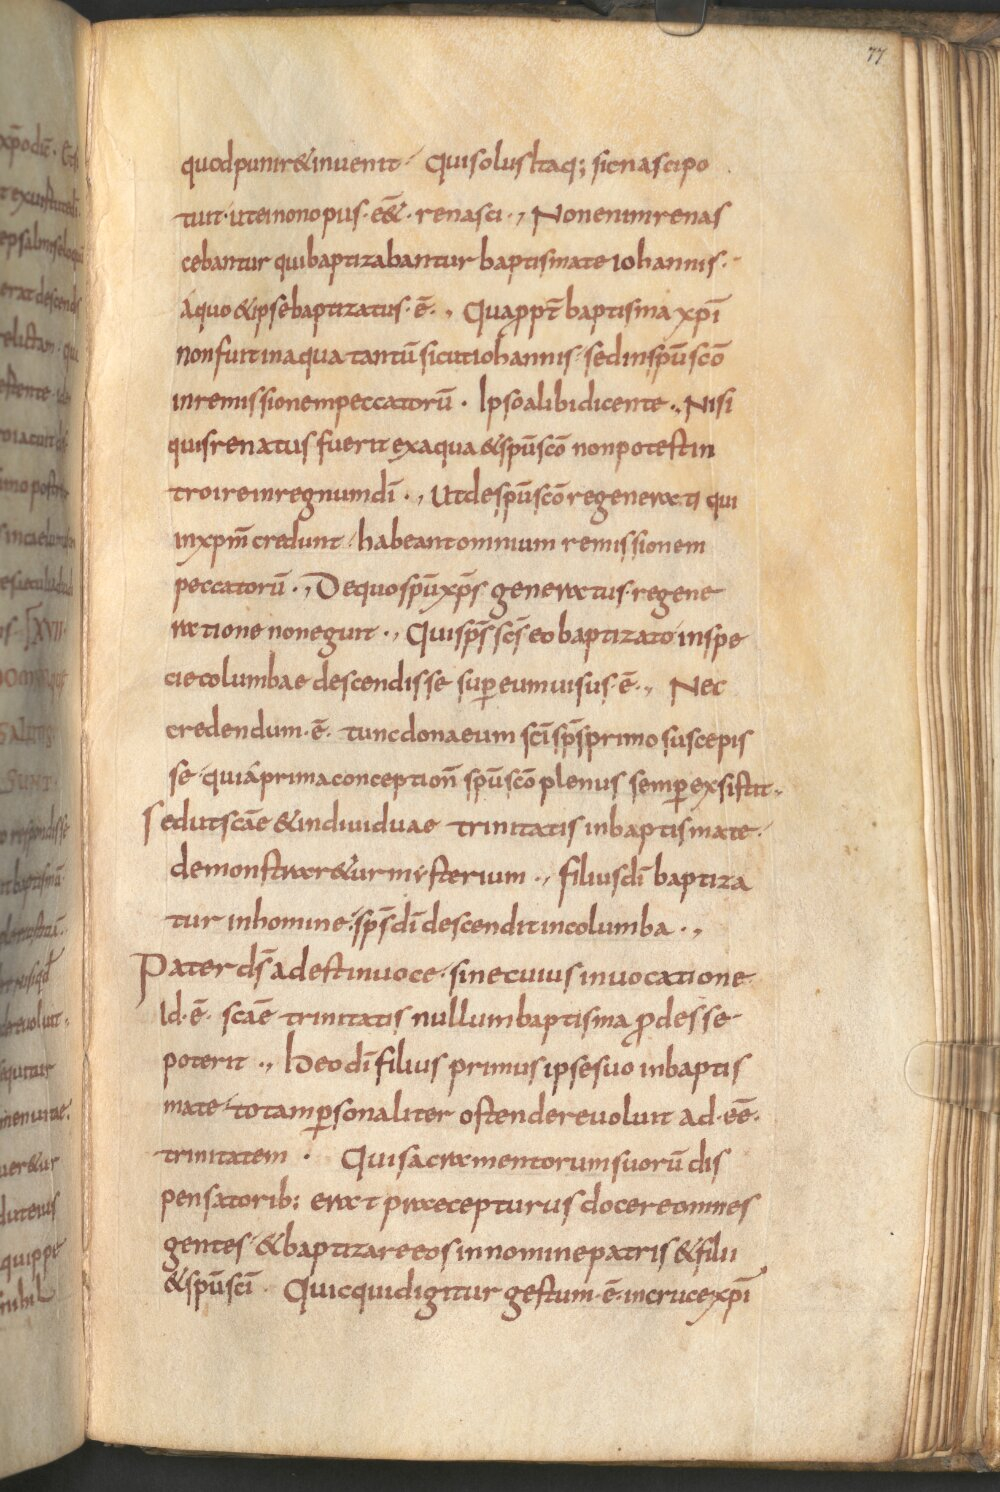 77
quod punir&inuenit · Qui solus Itaq; sic nasci po
tuit · ut ei non opus · eē& · renasci ·, Non enim renas
cebantur qui baptizabantur baptismate iohannis ·
Áquo &ipse baptizatus · ē ·, Quapropt̄ baptisma xp̄i
non fuit in aqua tantū sicut iohannis · sed in sp̄u sc̄o
in remissionem peccatorū · Ipso alibi dicente ·, Nisi
quis renatus fuerit ex aqua & sp̄u sc̄o non potest in
troire in regnum dī ·, Ut de sp̄u sc̄o regenerati qui
in xp̄m credunt · habeant omnium remissionem
peccatorū ·, De quo sp̄u xp̄s generatus · regene
ratione non eguit ·, Qui sp̄s sc̄s eo baptizato in spe
cie columbae descendisse sup̱ eum uisus · ē ·, Nec
credendum · ē · tunc dona eum sc̄i sp̄s primo suscepis
se · quiá prima conception̄ sp̄u sc̄o plenus semp̱ exsistit ·,
Sed ut sc̄ae & indiuiduae trinitatis in baptismate ·
demonstrar&ur mysterium ·, filius dī baptiza
tur in homine · sp̄s dī descendit in columba ·,
Pater d̄s adest in uoce · sine cuius inuocatione
Id · ē · sc̄ae trinitatis nullum baptisma ꝓdesse
poterit ·, Ideo dī filius primus ipse suo in baptis
mate · totam p̱sonaliter ostendere uoluit ad · eē ·
trinitatem · Qui sacramentorum suorū dis
pensatorib; erat praecepturus docere omnes
gentes · & baptizare eos in nomine patris & filii
& sp̄u sc̄i Quicquid igitur gestum · ē · in cruce xp̄i